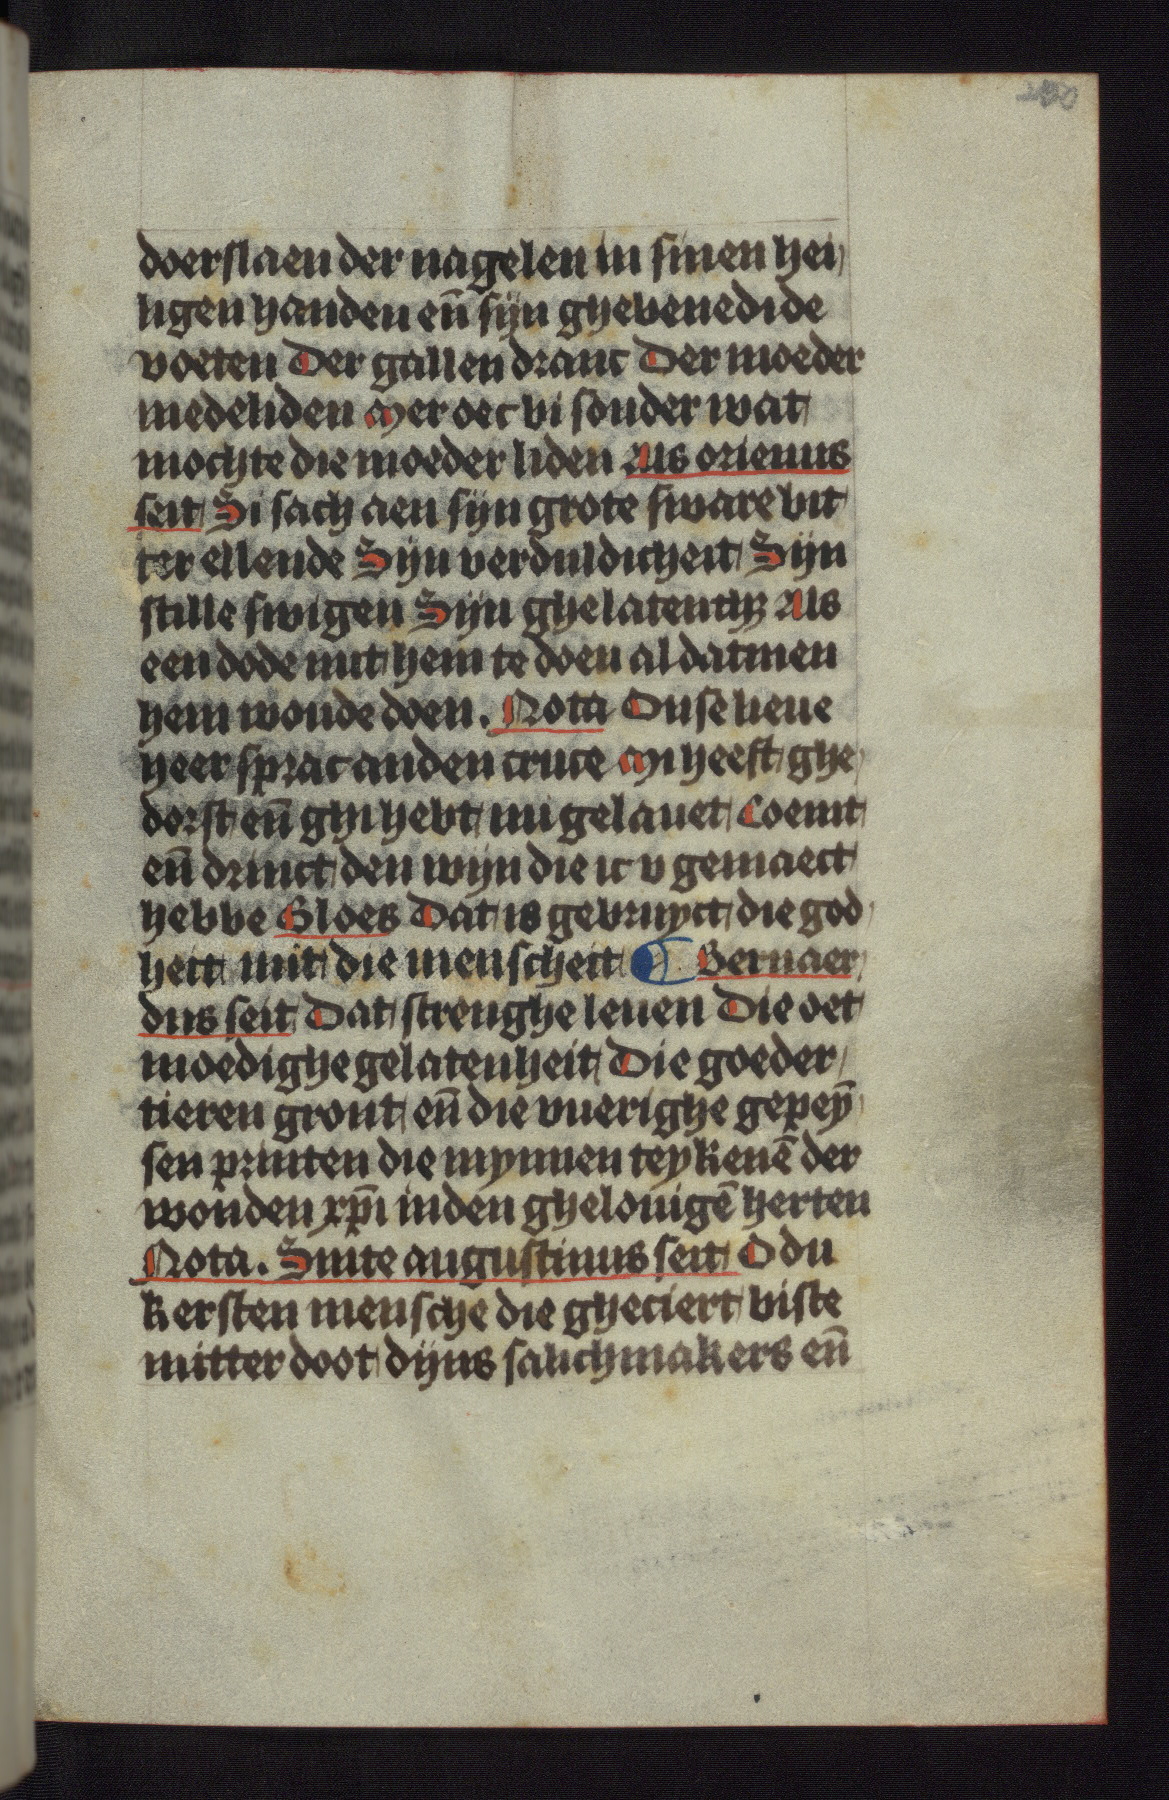 doerslaen der nagelen in sinen hei
ligen handen en̄ sijn ghebenedide
voeten Der gallen dranc Der moeder
medeliden Mer oec bi sonder wat
mochte die moeder liden Als orienus
seit Si sach aen sijn grote sware bit
ter ellende Sijn verduldicheit Sijn
stille swigen Sijn ghelatenthz Als
een dode mit hem te doen al datmen
hem wonde doen. Nota Onse lieue
heer sprac anden cruce Mi heeft ghe
dorst en̄ ghi hebt mi gelauet Coemt
en̄ drinct den wijn die ic v gemaect
hebbe Gloes Dat is gebruyct die god
heit mit die menscheit Bernaer
dus seit Dat strenghe leuen Die oet
moedighe gelatenheit Die goeder
tieren gront en̄ die vuerighe gepeȳ
sen printen die mynnen teykenē der
wonden xp̄i inden ghelouigē herten
Nota. Sinte augustinus seit O du
kersten mensche die gheciert biste
mitter doot dijns salichmakers en̄